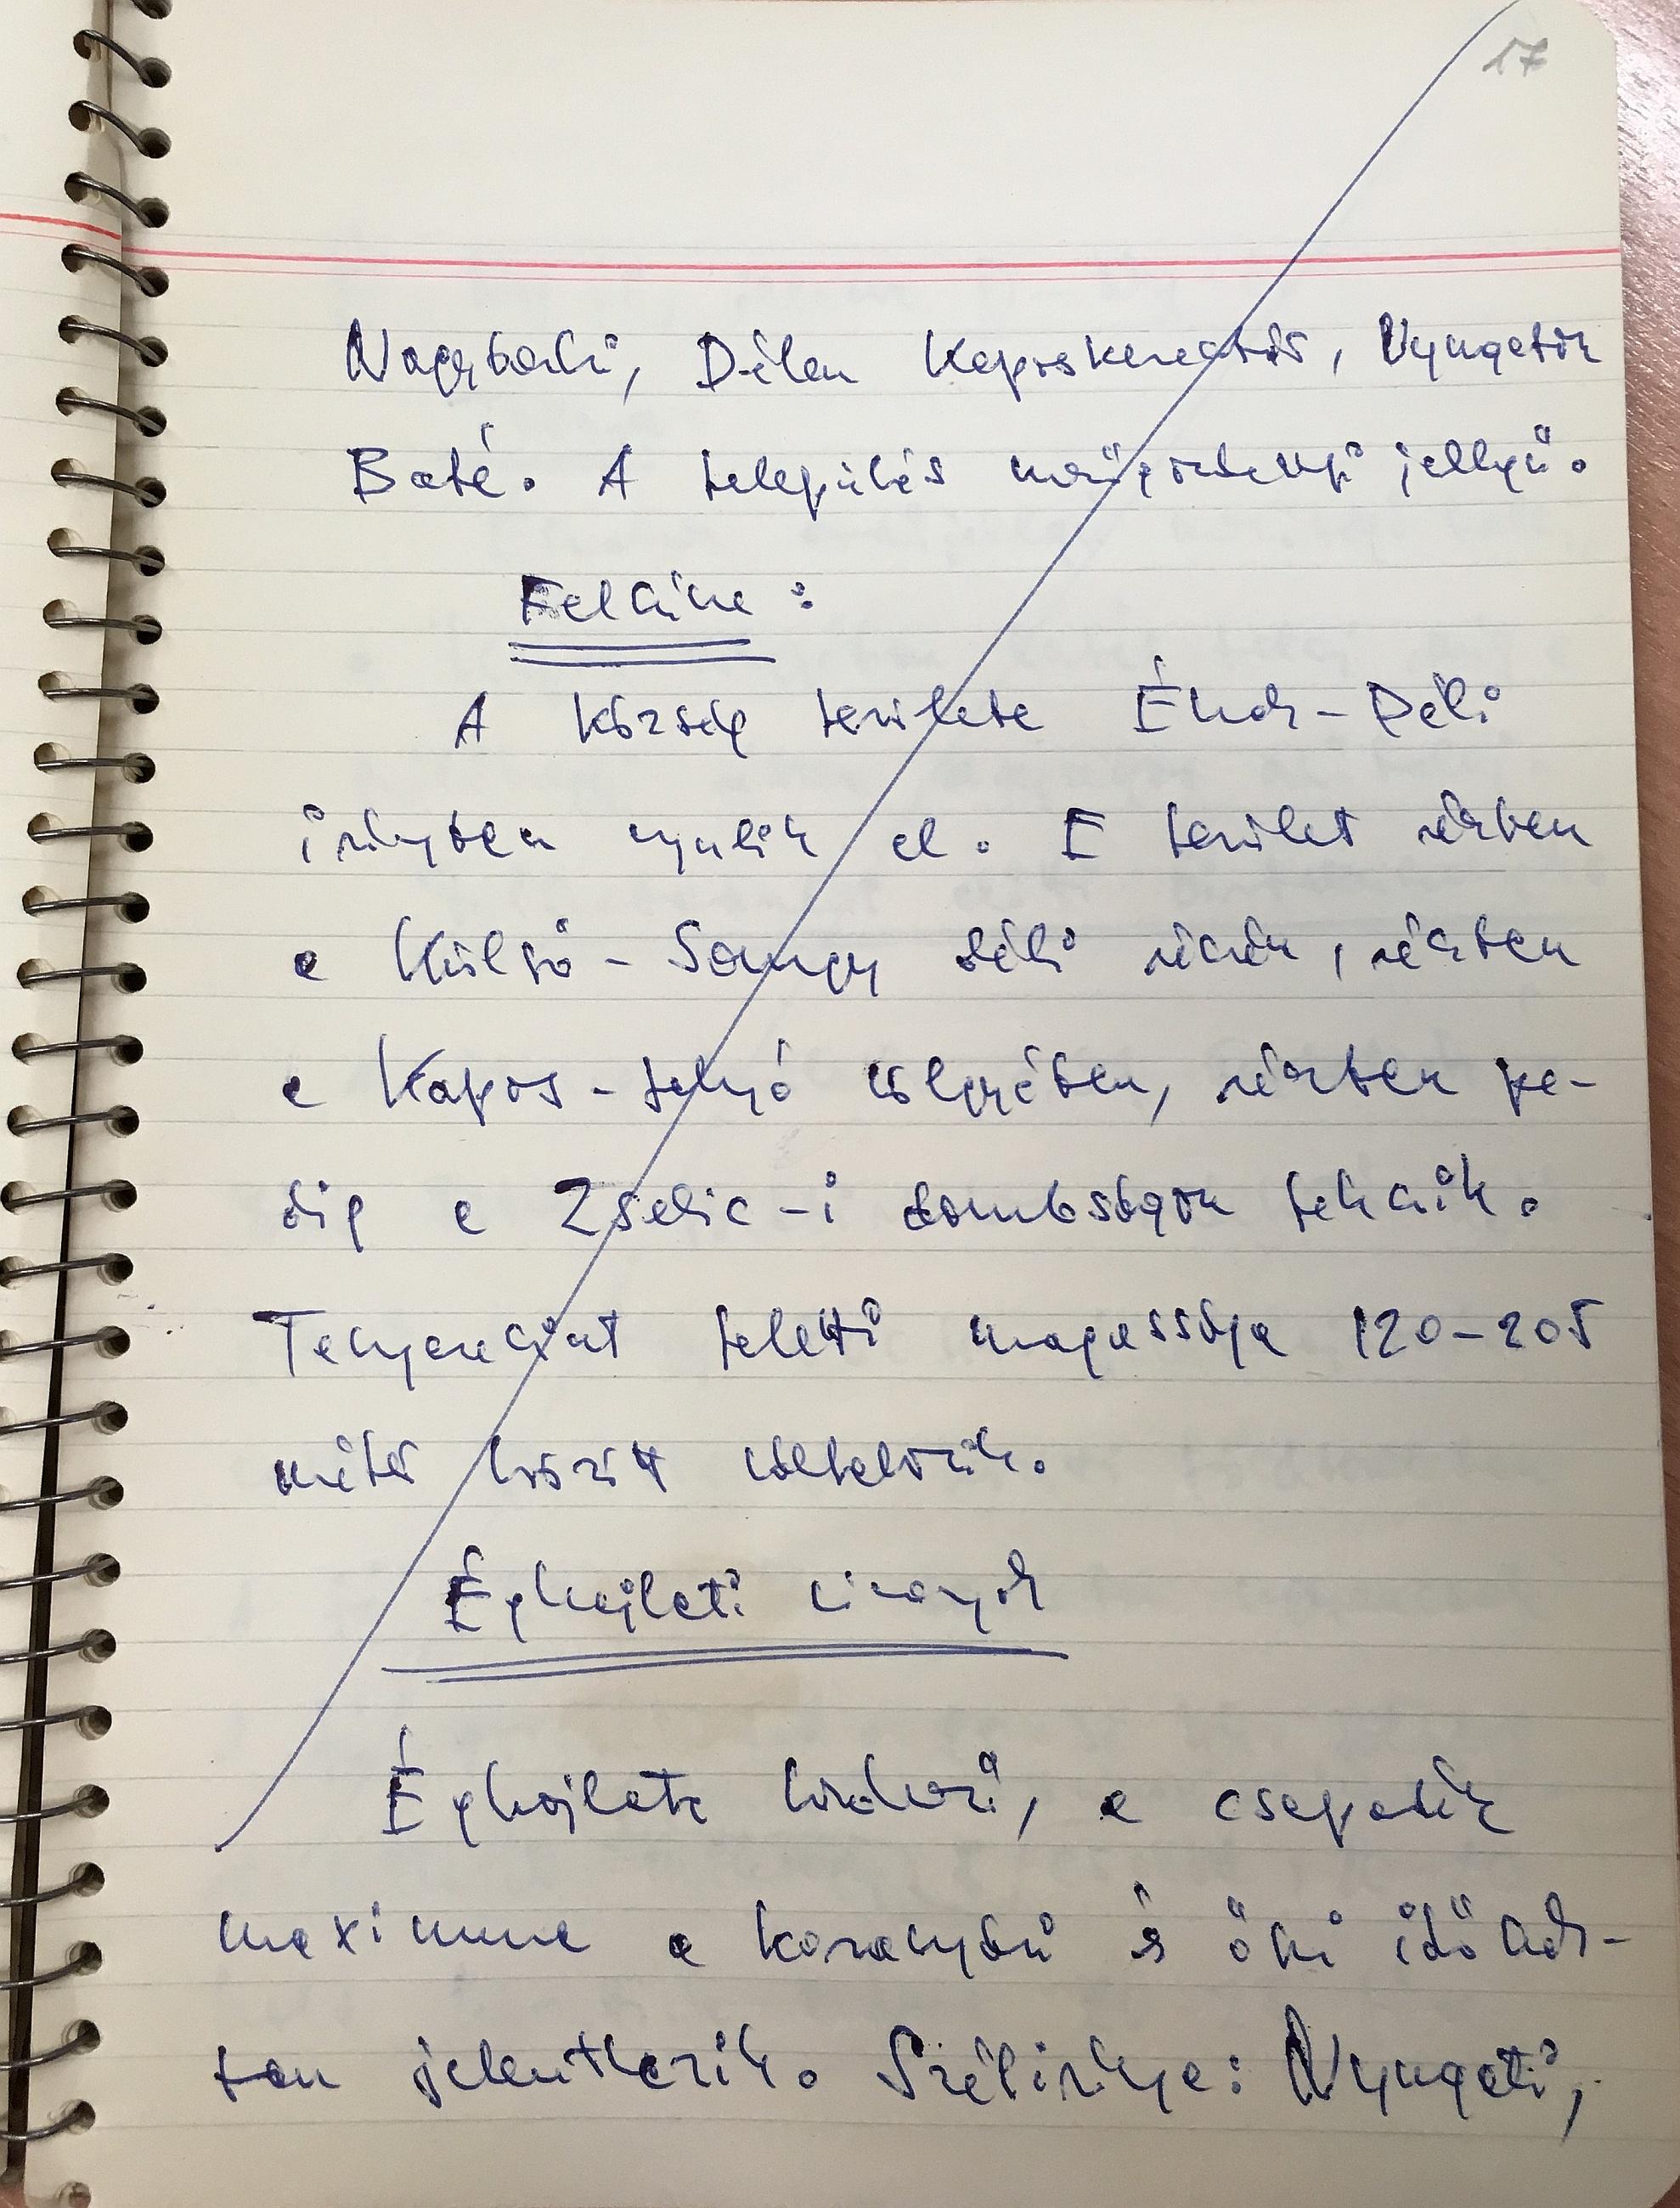 17
Nagyberki, Délen Kaposkeresztúr, Nyugaton
Baté. A település jellegű.
Felszíne:
A község területe Észak-Déli
irányban nyúlik el. E terület részben
a Külső-Somogy déli részén, részben
a Kapos-folyó völgyében, részben pe-
dig a Zselic-i dombságon fekszik.
Tengerszint feletti magassága 120-205
méter között váltakozik.
Éghajlati viszonyok
Éghajlata, a csapadék
maximuma a koranyári és őszi időszak-
ban jelentkezik. Széliránya: Nyugati,